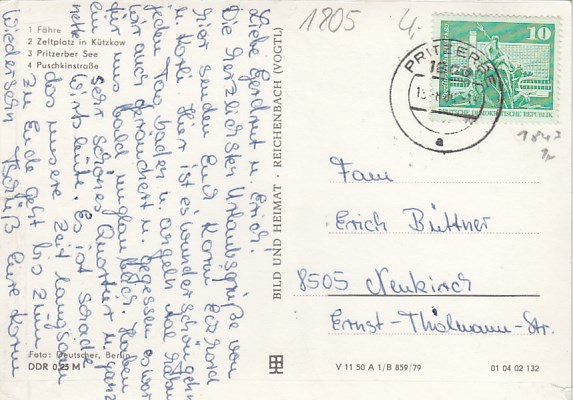 1 Fähre
2 Zeltplatz in Kützkow
3 Pritzerber See
4 Puschkinstraße
Liebe Gerdraut u. Erich!
Die herzlichsten Urlaubsgrüße von
hier senden Euch Horni
u. Horli. Hier ist es wunderschön gehn
jeden Tag baden u. angeln. Aal haben
wir auch geräuchert u. gegessen es war
für uns bald unglaublich. Haben
ein sehr schönes Quartier u. ganz
nette Wirtsleute. Es ist schade
das unsere Zeit langsam
zu Ende geht bis zum
Wiedersehn Tschüß Eure Horni
Foto: Deutscher, Berlin
DDR 0,25 M
BILD UND HEIMAT · REICHENBACH (VOGTL)
1805
4.
PRITZERBE
1805
a
10
DEUTSCHE DEMOKRATISCHE REPUBLIK
1842
Fam
Erich Büttner
8505 Neukirch
Ernst-Thälmann-Str.
V 11 50 A 1/B 859/79
01 04 02 132